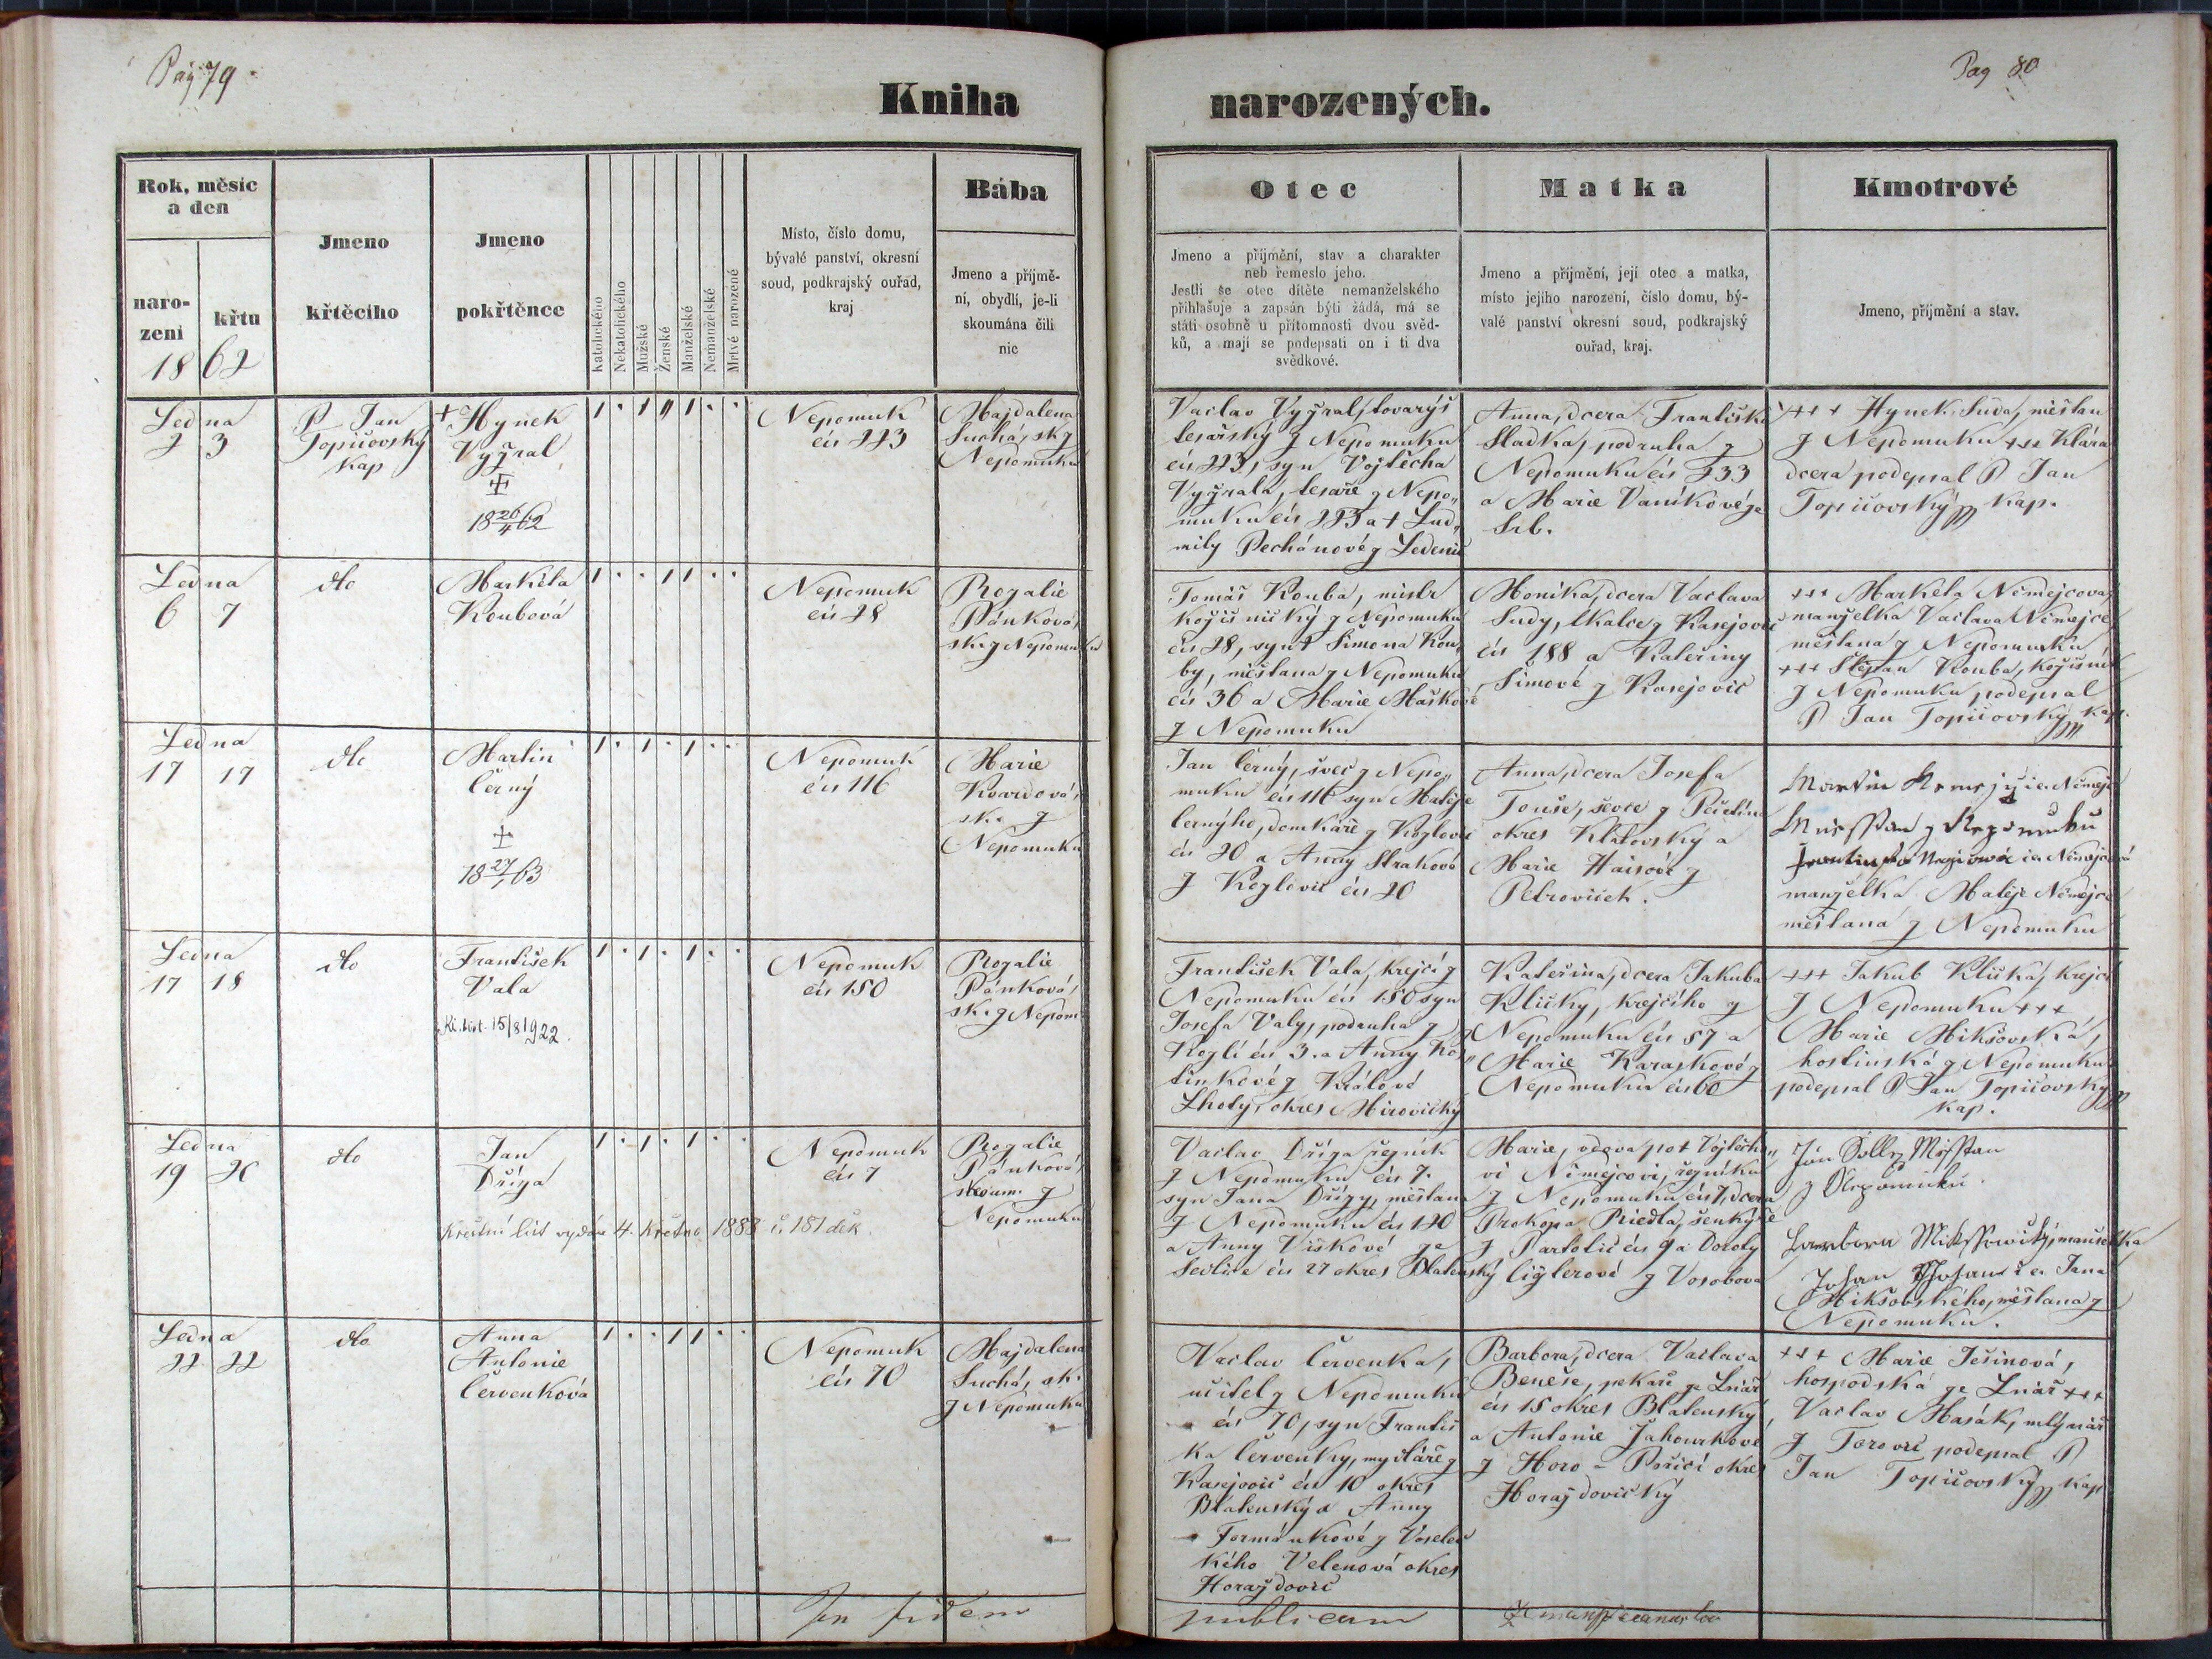 Pag 79
Pag 80
Kniha narozených.
Rok, měsíc
a den
naro-
zení
křtu
1862
Jmeno
křtěcího
Jmeno
pokřtěnce
Katolického
Nekatolického
Mužské
Ženské
Manželské
Nemanželské
Mrtvě narozené
Místo, číslo domu,
bývalé panství, okresní
soud, podkrajský ouřad,
kraj
Bába
Jmeno a příjmě-
ní, obydlí, je-li
skoumána čili
nic
Otec
Jmeno a příjmění, stav a charakter
neb řemeslo jeho.
Jestli se otec dítěte nemanželského
přihlašuje a zapsán býti žádá, má se
státi osobně u přítomnosti dvou svěd-
ků, a mají se podepsati on i ti dva
svědkové.
Matka
Jmeno a příjmění, její otec a matka,
místo jejího narození, číslo domu, bý-
valé panství okresní soud, podkrajský
ouřad, kraj.
Kmotrové
Jmeno, příjmění a stav.
Ledna
2 3
P Jan
Topičovský
Kap
+ Hynek
Vyžral
+
18 26/4 62
Nepomuk
čís 223
Majdalena
Suchá, sk z
Nepomuku
Vaclav Vyžral, tovaryš
tesařský z Nepomuku
čís 223, syn Vojtěcha
Vyžrala, tesaře z Nepo„
muku čís 223 a + Lud„
mily Pechánové z Ledenic
Anna, dcera Františka
Sladka, podruha z
Nepomuku čís 233
a Marie Vaníkové ze
Srb.
+++ Hynek Suda, měštan
z Nepomuku +++ Klára
dcera podepsal P Jan
Topičovský Kap.
Ledna
6 7
dto
Markéta
Koubová
Nepomuk
čís 28
Rozalie
Pánková,
sk. z Nepomuku
Tomáš Kouba, mistr
kožišnický z Nepomuku
čís 28, syn + Šimona Kou„
by, měštana z Nepomuku
čís 36 a Marie Maškové
z Nepomuku
Monika, dcera Vaclava
Sudy, tkalce z Kasejovic
čís 188 a Kateřiny
Šimové z Kasejovic
+++ Markéta Němejcova
manželka Vaclava Němejce
měštana z Nepomuku
+++ Štěpan Kouba, Kožišník
z Nepomuku podepsal
P Jan Topičovský Kap.
Ledna
17 17
dto
Martin
Černý
+
18 27/1 63
Nepomuk
čís 116
Marie
Kvardová,
sk. z
Nepomuku
Jan Černý, švec z Nepo„
muku čís 116 syn Matěje
Černýho, domkáře z Kozlovic
čís 20 a Anny Strakové
z Kozlovic čís 20
Anna, dcera Josefa
Touše, ševce z
okres Klatovský a
Marie z
Petroviček.
Martin
manželka Matěje Němejce
měštana z Nepomuku
Ledna
17 18
dto
František
Vala
Kř. list. 15/8 1922.
Nepomuk
čís 150
Rozalie
Pánková,
sk. z Nepom
František Vala, krejčí z
Nepomuku čís 150 syn
Josefa Valy, podruha z
Kozlí čís 3. a Anny Kos„
tinkové z Králové
Lhoty, okres Mirovický
Kateřina, dcera Jakuba
Kličky, krejčího z
Nepomuku čís 57 a
Marie Karaskové z
Nepomuku čís 60
+++ Jakub Klička, krejčí
z Nepomuku +++
Marie Mikšovská,
hostinská z Nepomuku
podepsal P Jan Topičovský
Kap.
Ledna
19 20
dto
Jan
Dříza
Křestní list vydán 4. května 1883 č. 181 děk.
Nepomuk
čís 7
Rozalie
Pánková,
skoum. z
Nepomuku
Vaclav Dříza řezník
z Nepomuku čís 7.
syn Jana Dřízy, měštana
z Nepomuku čís 120
a Anny Viškové ze
Sedlice čís 27 okres Blatenský
Marie, vdova po + Vojtěcho„
vi Němejcovi, řezníku
z Nepomuku čís 7, dcera
Prokopa Riedla, šenkýře
z Partoltic čís 9 a Doroty
Ciglerové z Vosobova
z Nepomuku.
manželka
Jana
Mikšovského, měštana z
Nepomuku.
Ledna
22 22
dto
Anna
Antonie
Červenková
Nepomuk
čís 70
Majdalena
Suchá, sk.
z Nepomuku
Vaclav Červenka,
učitel z Nepomuku
čís 70, syn Františ
ka Červenky, mydláře z
Kasejovic čís 10 okres
Blatenský a Anny
Formánkové z Voselec
kého Velenová okres
Horažďovic
Barbora, dcera Vaclava
Beneše, pekaře ze Lnář
čís 15 okres Blatenský,
a Antonie Jahourkové
z Horo - Poříčí okres
Horažďovický
+++ Marie Ješinová,
hospodská ze Lnář +++
Vaclav Masák, mlýnář
z Tvorovic podepsal P
Jan Topičovský Kap
In fidem
publicam